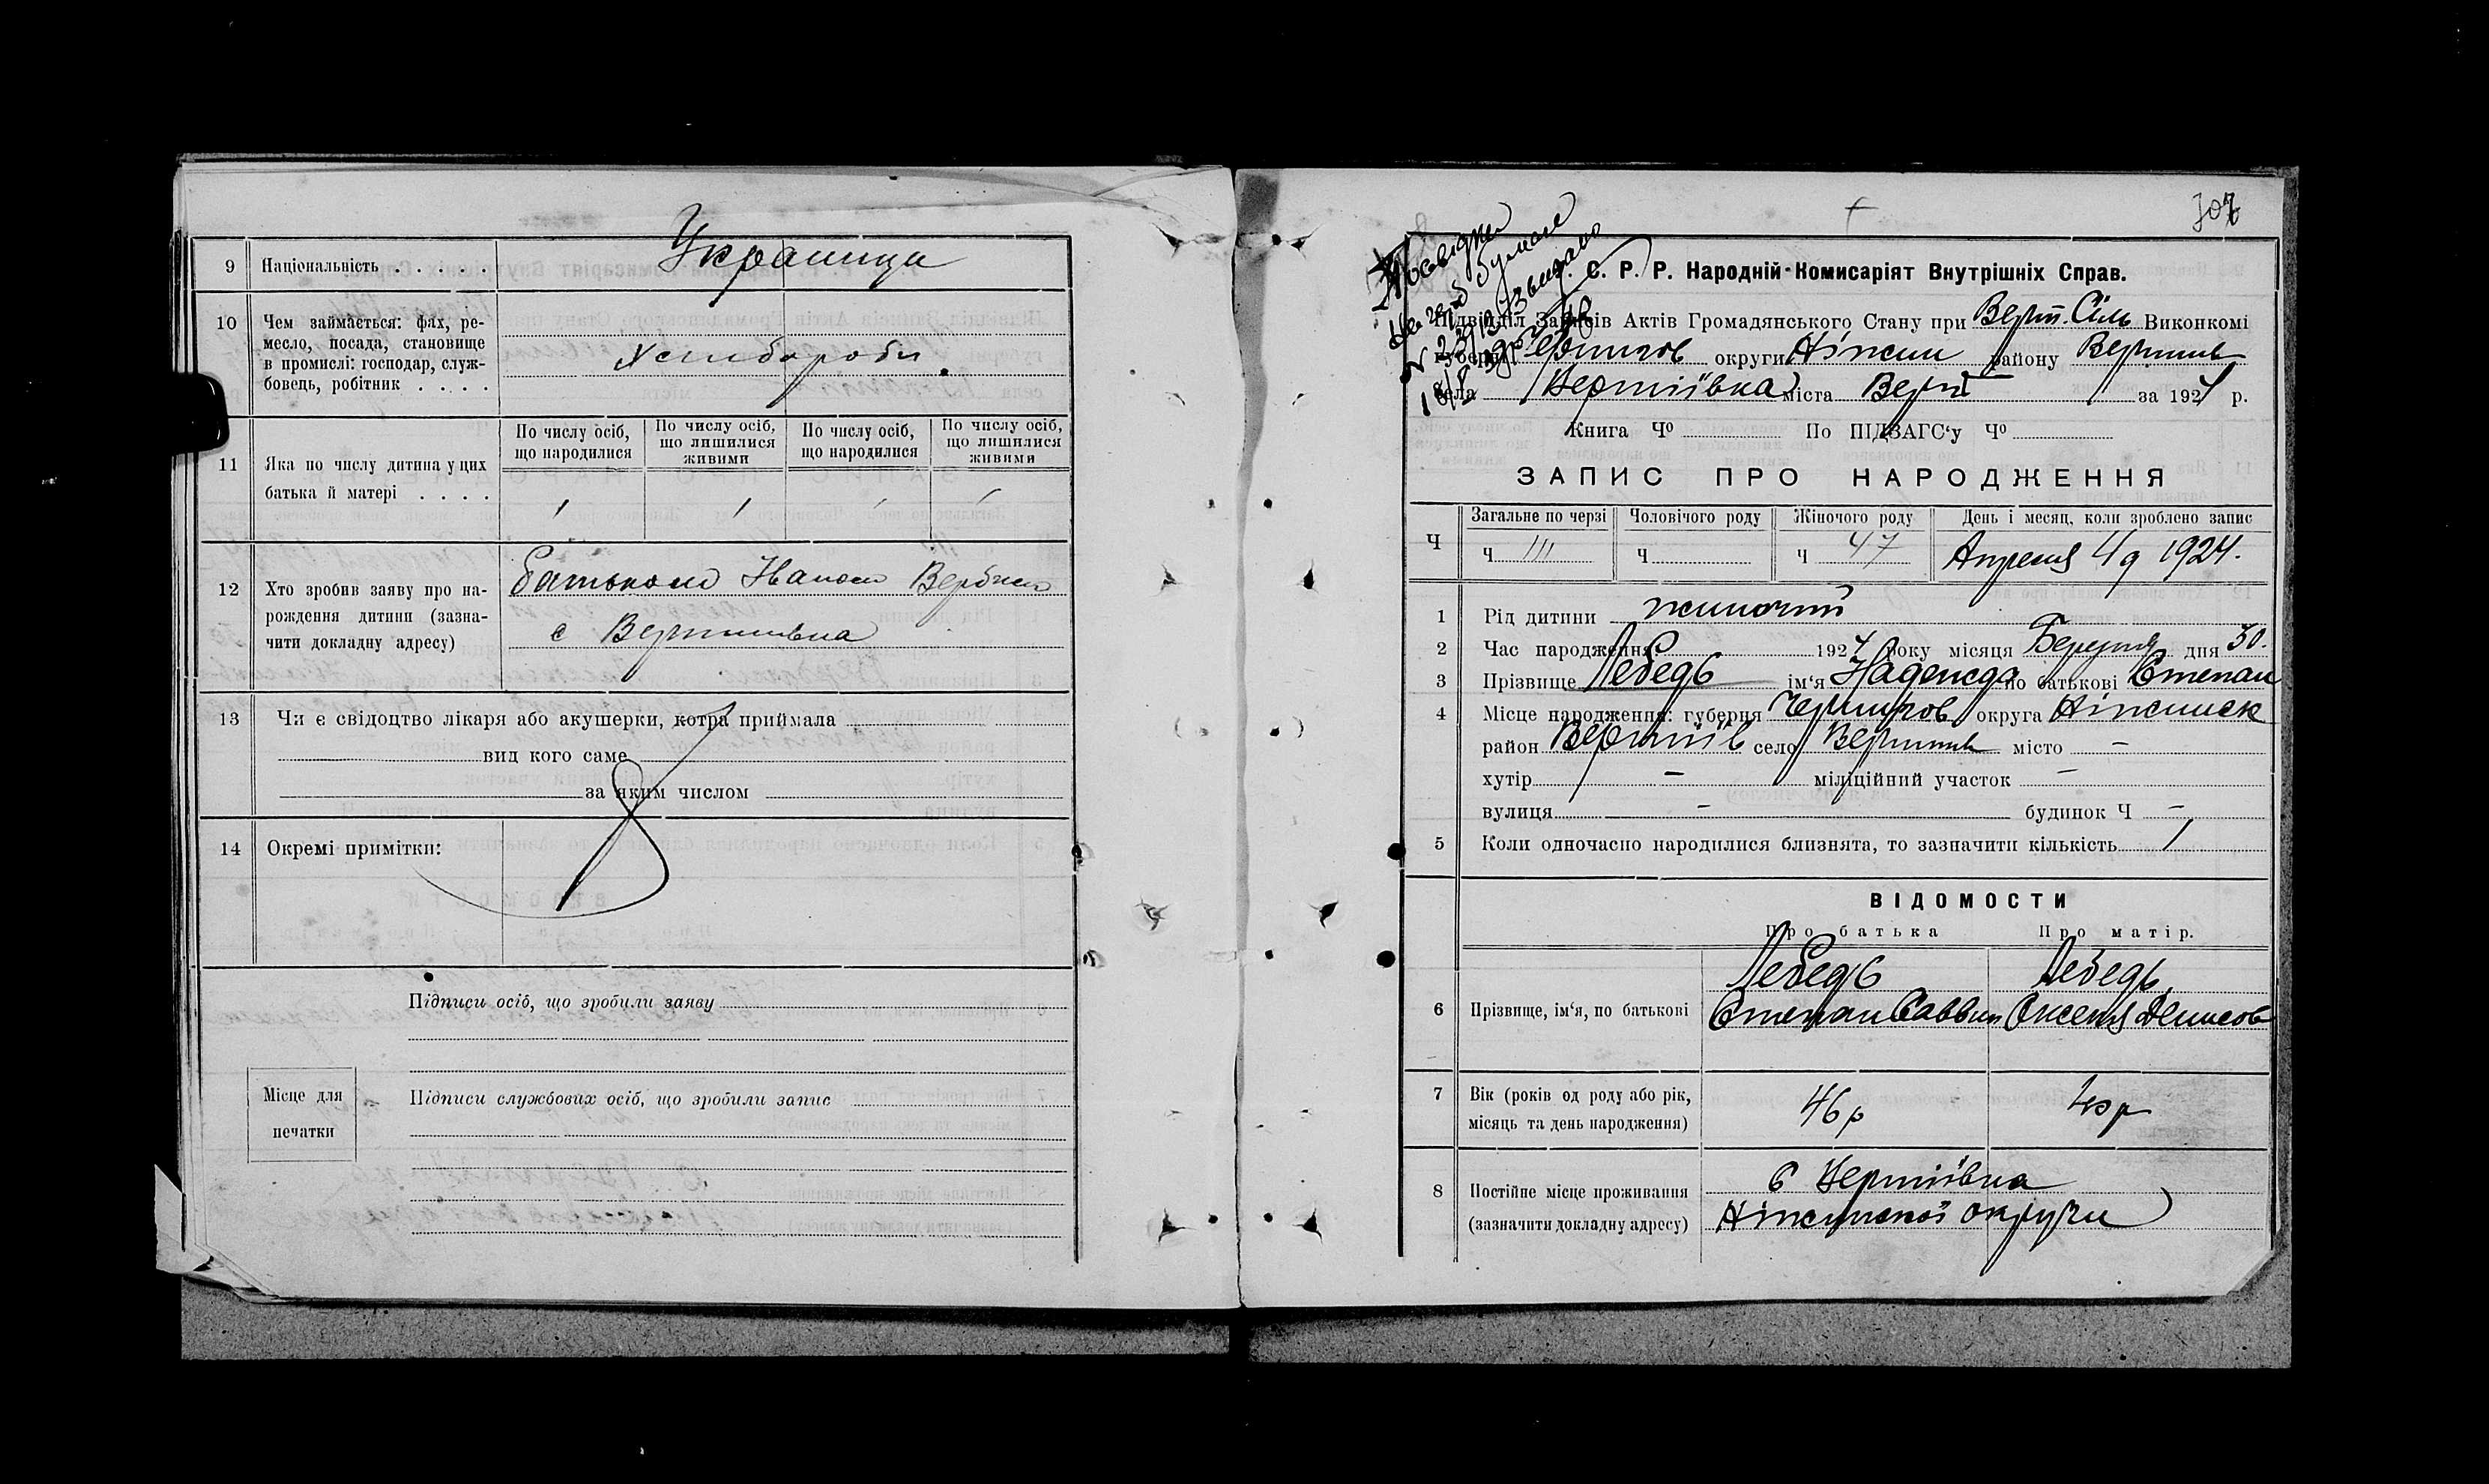 9 Національність . . . . . Украинца
10 Чем займається: фах, ре-
месло, посада, становище
в промислі: господар, служ-
бовець, робітник . . . .
Хлибороби.
11 Яка по числу дитина у цих
батька й матері . . . .
По числу осіб,
що народилися
По числу осіб,
що лишилися
живими
По числу осіб,
що народилися
По числу осіб,
що лишилися
живими
1 1
12 Хто зробив заяву про на-
рождення дитини (зазна-
чити докладну адресу)
батьком Иваном
с
13 Чи є свідоцтво лікаря або акушерки, котра приймала
вид кого саме
за яким числом
14 Окремі примітки:
Підписи осіб, що зробили заяву
Місце для
печатки
Підписи службових осіб, що зробили запис
307
С. Р. Р. Народній Комисаріят Внутрішніх Справ.
Підвідділ Записів Актів Громадянського Стану при Верт. Сіль Виконкомі
губерн Чернигов округи Ніжин району Вертиев
села Вертіївка міста Верт за 1924 р.
Книга Ч⁰ По ПІДЗАГС‘у Ч⁰
ЗАПИС ПРО НАРОДЖЕННЯ
Ч
Загальне по черзі
Чоловічого роду
Жіночого роду
День і месяц, коли зроблено запис
ч 111 ч ч 47 Апреля 4 д 1924.
1 Рід дитини жиночий
2 Час народження: 1924 року месяця Березня дня 30.
3 Прізвище Лебедь ім‘я Надежда по батькові Степан
4 Місце народження: губерня Чернигов округа Ніжинск
район Вертиїв село Вертиев місто –
хутір – міліційний участок –
вулиця – будинок Ч –
5 Коли одночасно народилися близнята, то зазначити кількість 1
ВІДОМОСТИ
Про батька Про матір.
6 Прізвище, ім‘я, по батькові
Лебедь Лебедь
Степан Саввин Оксения Денисов
7 Вік (років од роду або рік,
місяць та день народження)
46 р
8 Постійне місце проживання
(зазначити докладну адресу)
с Вертіївка
Ніжинської округи